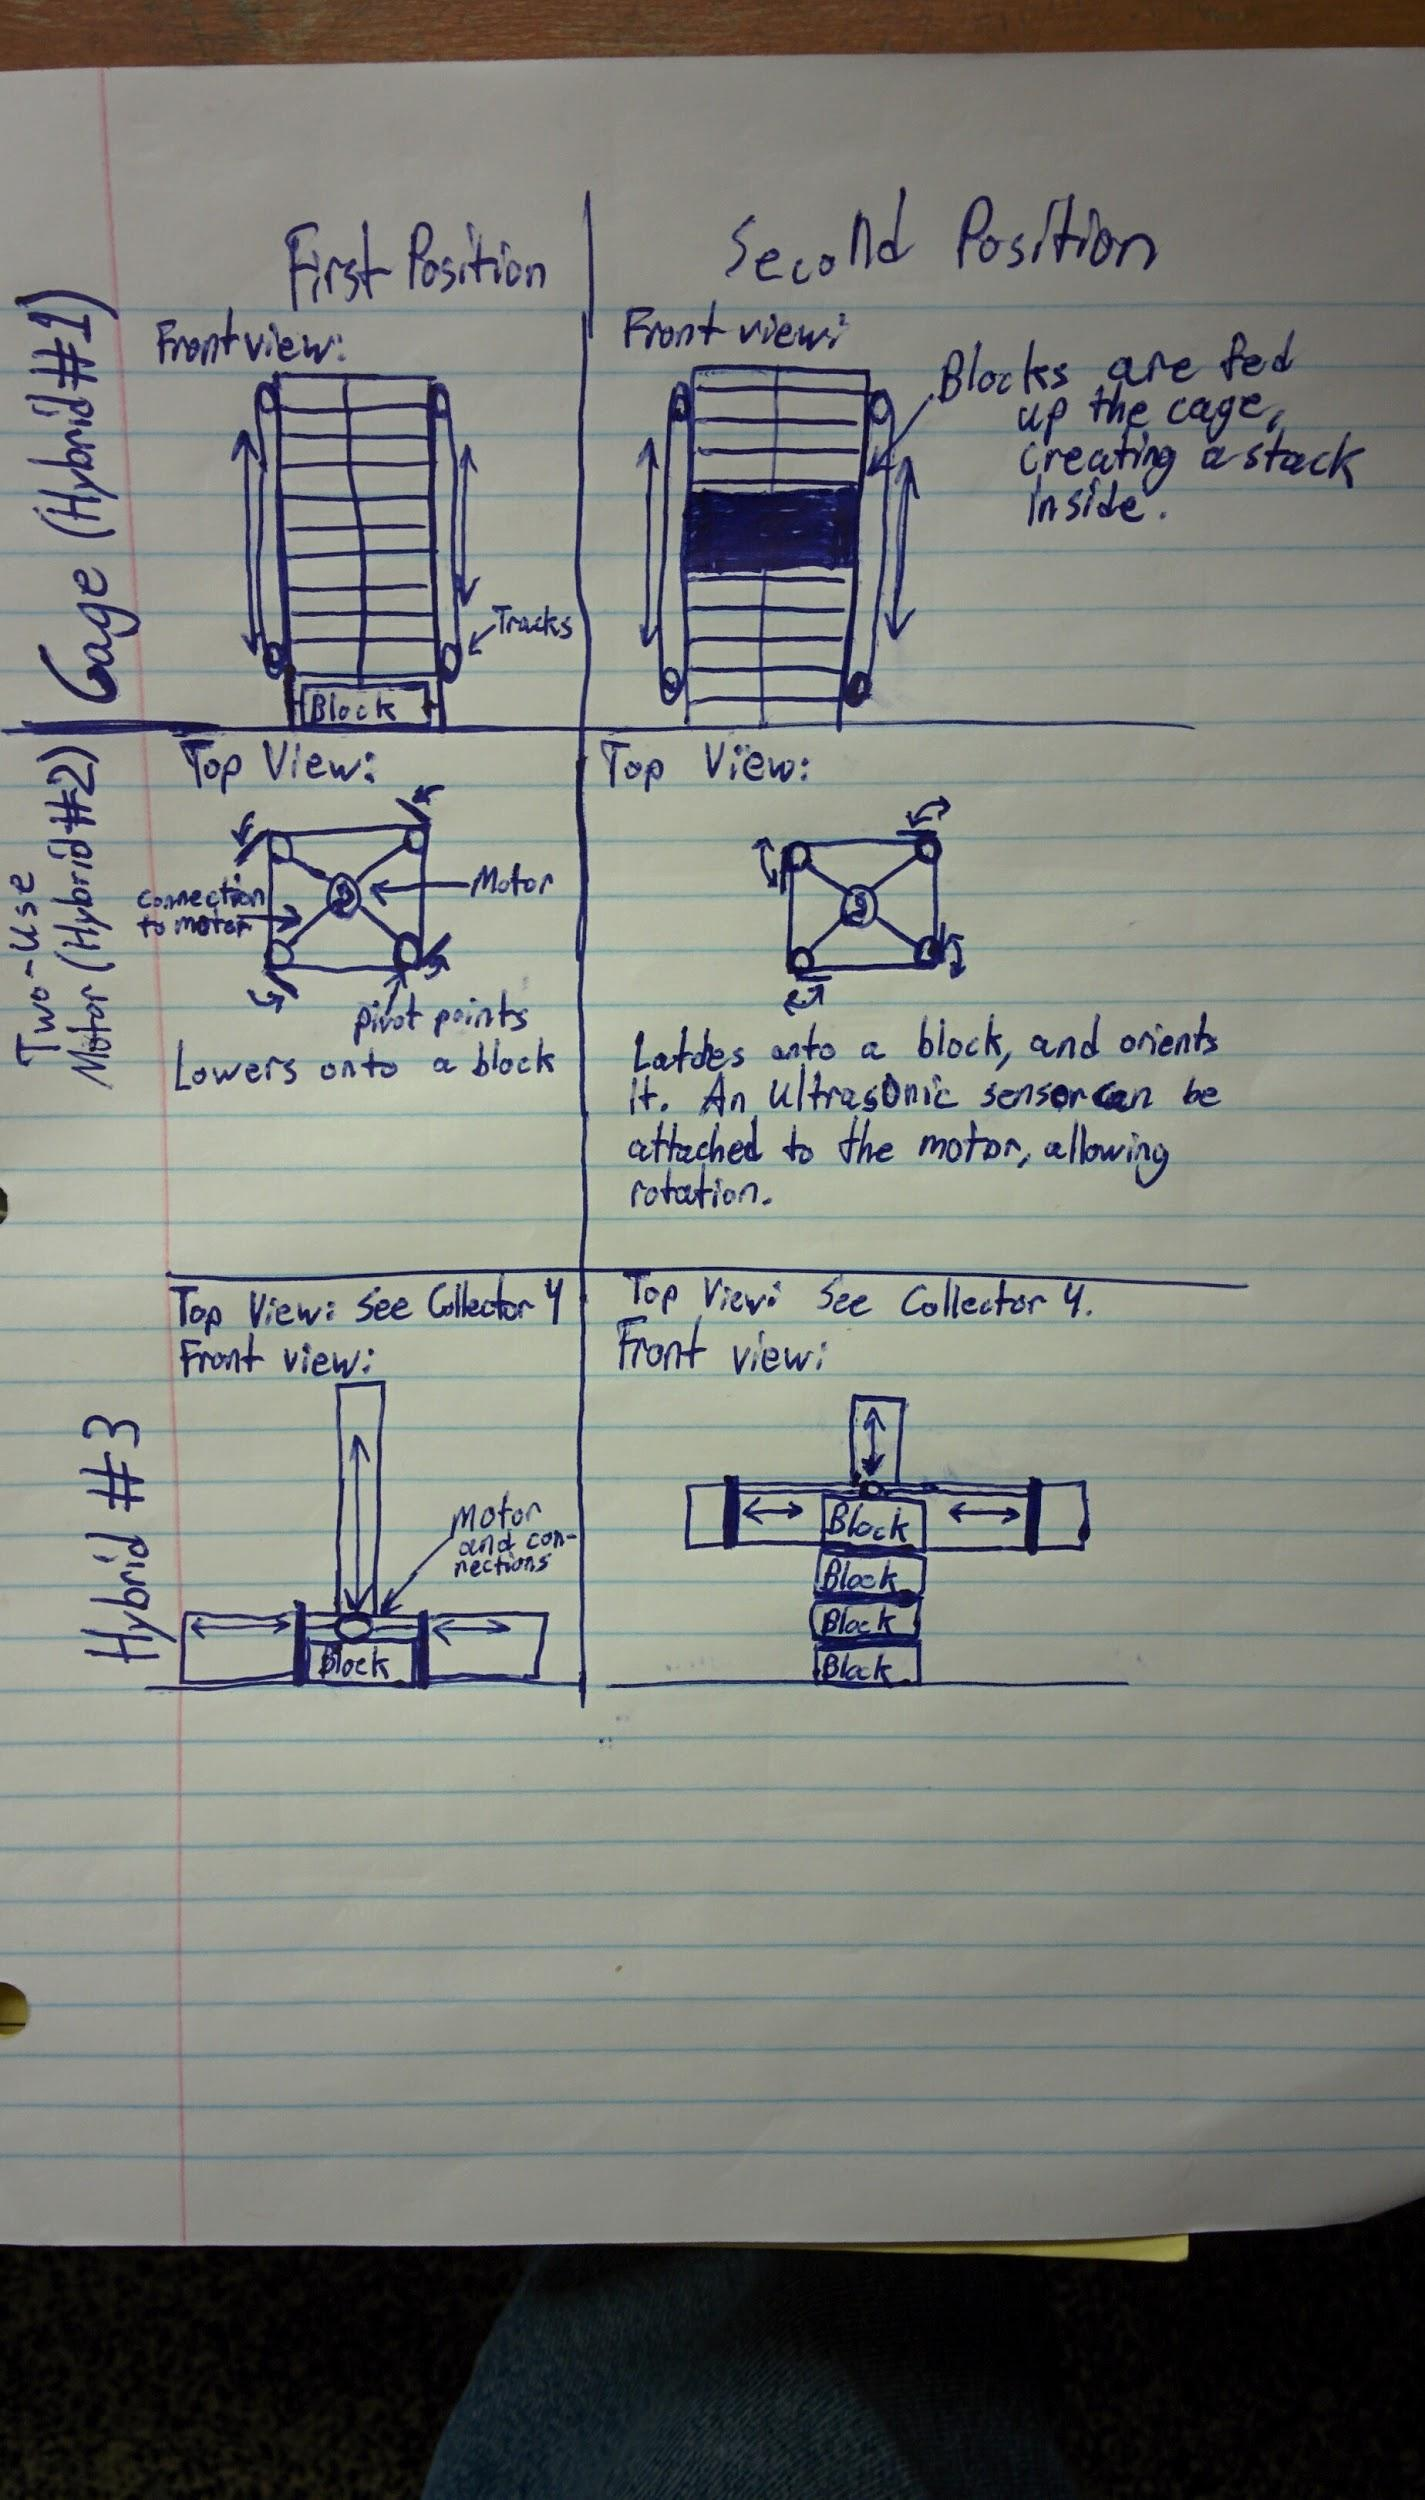 First Position
Second Position
Cage (Hybrid #1)
Front view:
Tracks
Block
Front view:
Blocks are fed
up the cage,
creating a stack
inside.
Two-Use
Motor (Hybrid #2)
Top View:
Motor
connection
to motor
pivot points
Lowers onto a block
Top View:
Latches onto a block, and orients
it. An Ultrasonic sensor can be
attached to the motor, allowing
rotation.
Hybrid #3
Top View: See Collector 4
Front view:
Motor
and con-
nections
Block
Top View: See Collector 4.
Front view:
Block
Block
Block
Block